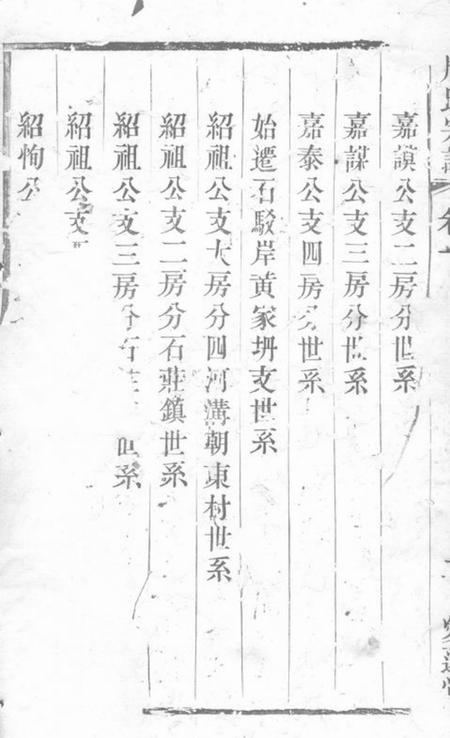 氏宗譜 卷一
嘉謨公支二房分世系
嘉謀公支三房分世系
嘉泰公支四房分世系
始遷石駁岸黃家坍支世系
紹祖公支大房分四河溝朝東村世系
紹祖公支二房分石莊鎮世系
紹祖公支三房分石 世系
紹祖公支
紹恂公